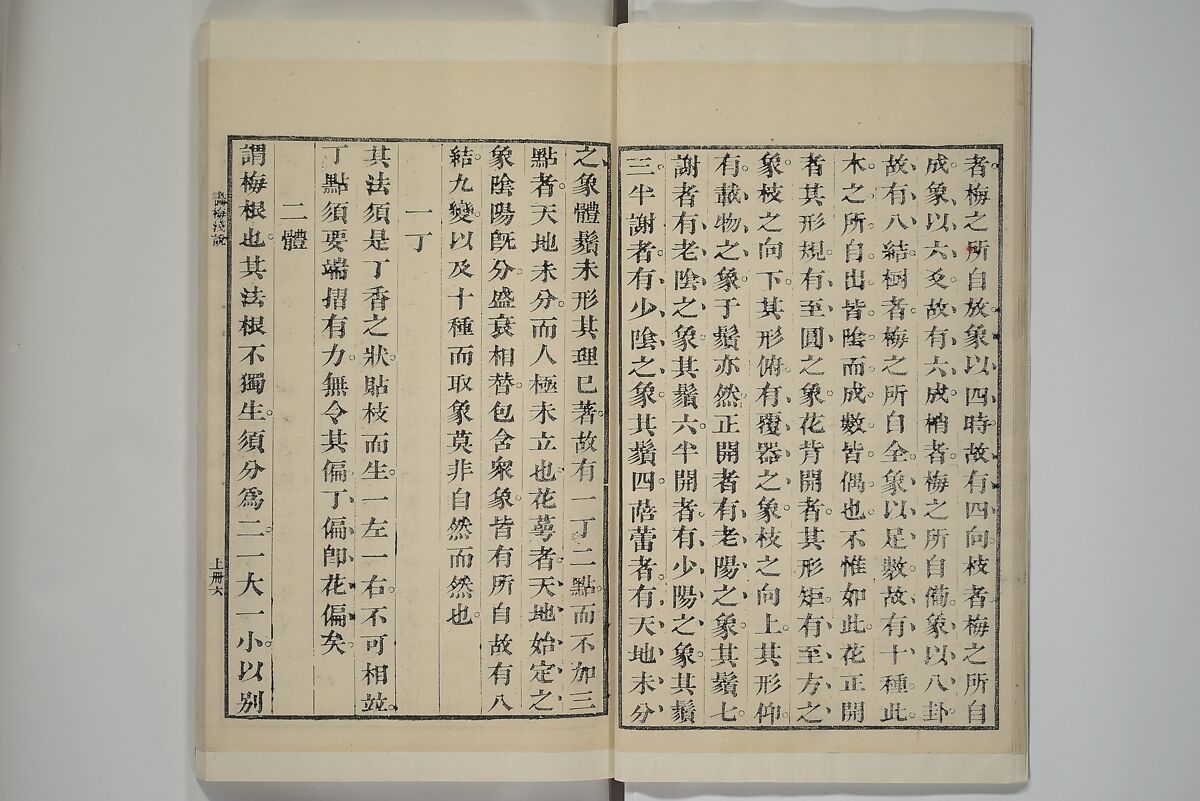 者梅之所自放象以四時故有四向枝者梅之所自
成象以六爻故有六成梢者梅之所自備象以八卦
故有八結樹者梅之所自全象以足數故有十種此
木之所自出皆陰而成數皆偶也不惟如此花正開
者其形規有至圓之象花背開者其形矩有至方之
象枝之向下其形俯有覆器之象枝之向上其形仰
有載物之象于鬚亦然正開者有老陽之象其鬚七
謝者有老陰之象其鬚六半開者有少陽之象其鬚
三半謝者有少陰之象其鬚四蓓蕾者有天地未分
之象體鬚未形其理已著故有一丁二點而不加三
點者天地未分而人極未立也花萼者天地始定之
象陰陽旣分盛衰相替包含衆象皆有所自故有八
結九變以及十種而取象莫非自然而然也
一丁
其法須是丁香之狀貼枝而生一左一右不可相竝
丁點須要端揩有力無令其偏丁偏卽花偏矣
二體
謂梅根也其法根不獨生須分爲二一大一小以别
畫梅淺說
上册六